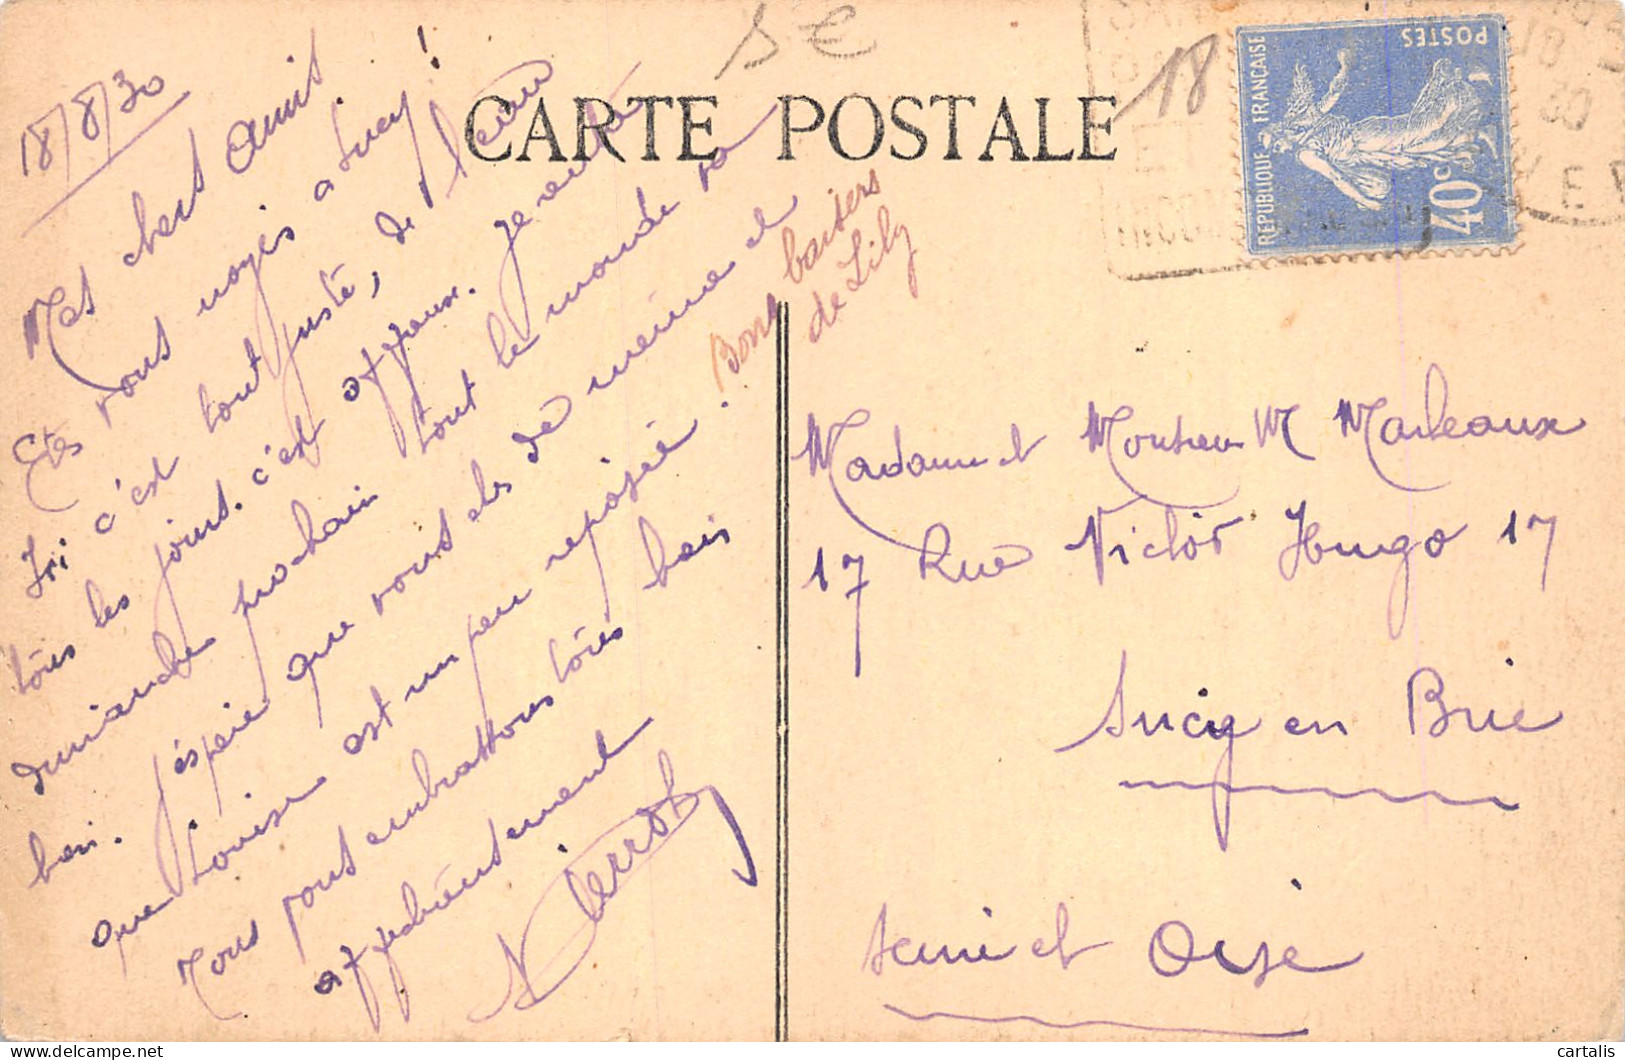 18/8/30
Mes chers amis
Etes vous noyés a Sucy !
Ici c'est tout juste, de l'eau
tous les jours. c'est affreux. Je
dimanche prochain tout le monde va
bien. J'espère que vous etes de même et
que Louise est un peu reposée.
Nous vous embrassons tous bien
affectueusement
Pierrot
Bons baisers
de Lily
CARTE POSTALE
5 €
18
REPUBLIQUE FRANÇAISE
POSTES
40c
18
30
Madame et Monsieur M Marleaux
17 Rue Victor Hugo 17
Sucy en Brie
Seine et Oise
cartalis